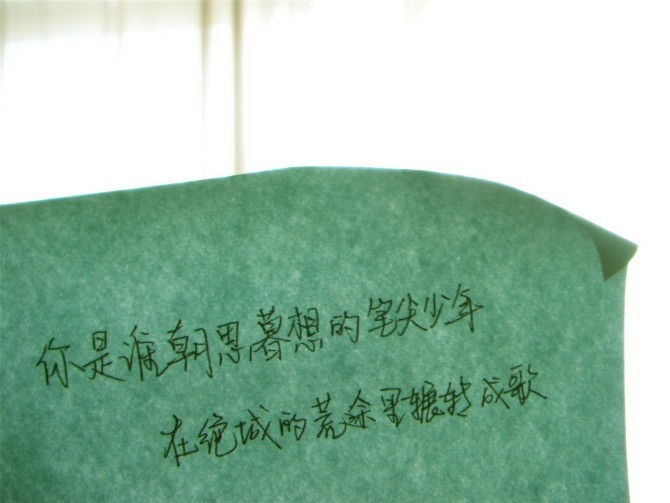 你是谁朝思暮想的笔尖少年
在绝城的荒途里辗转成歌